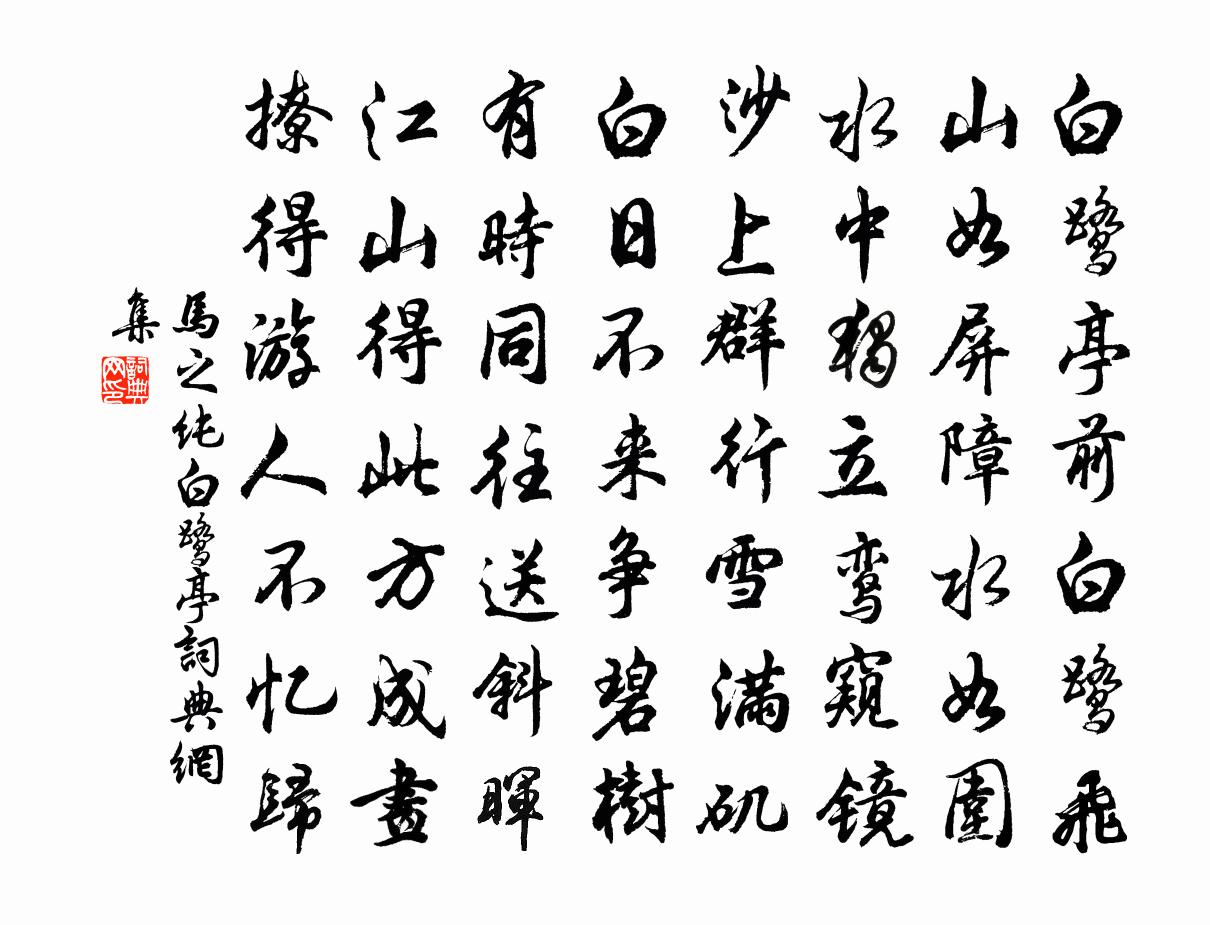 白鹭亭前白鹭飛
山如屏障水如圍
水中獨立鸾窺镜
沙上群行雪滿矶
白日不来争碧樹
有時同往送斜暉
江山得此方成畫
撩得游人不忆歸
馬之纯白鹭亭詞典網
集
詞典
网印